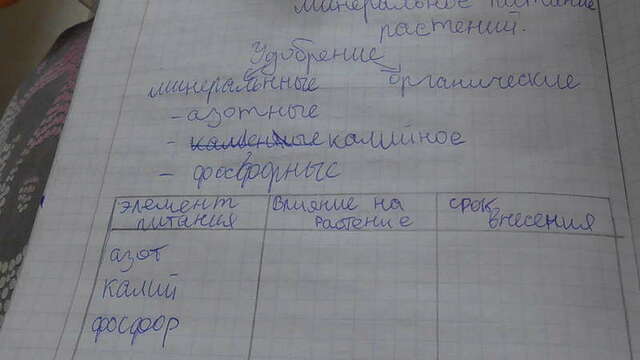 минеральное питание
растений.
Удобрение
минеральные органические
- азотные
- каменные калийное
- фосфорные
элемент питания
влияние на растение
срок внесения
азот
калий
фосфор